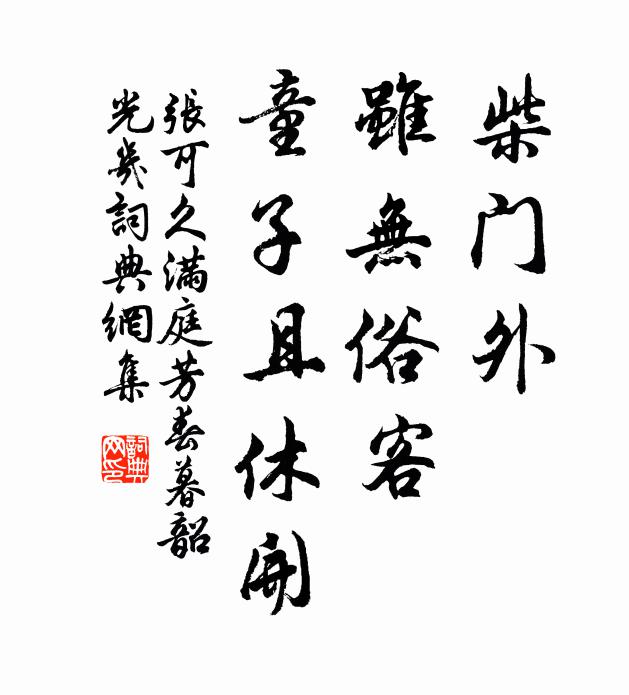 柴门外
雖無俗客
童子且休開
張可久滿庭芳春暮韶
光幾詞典網集
詞典网印